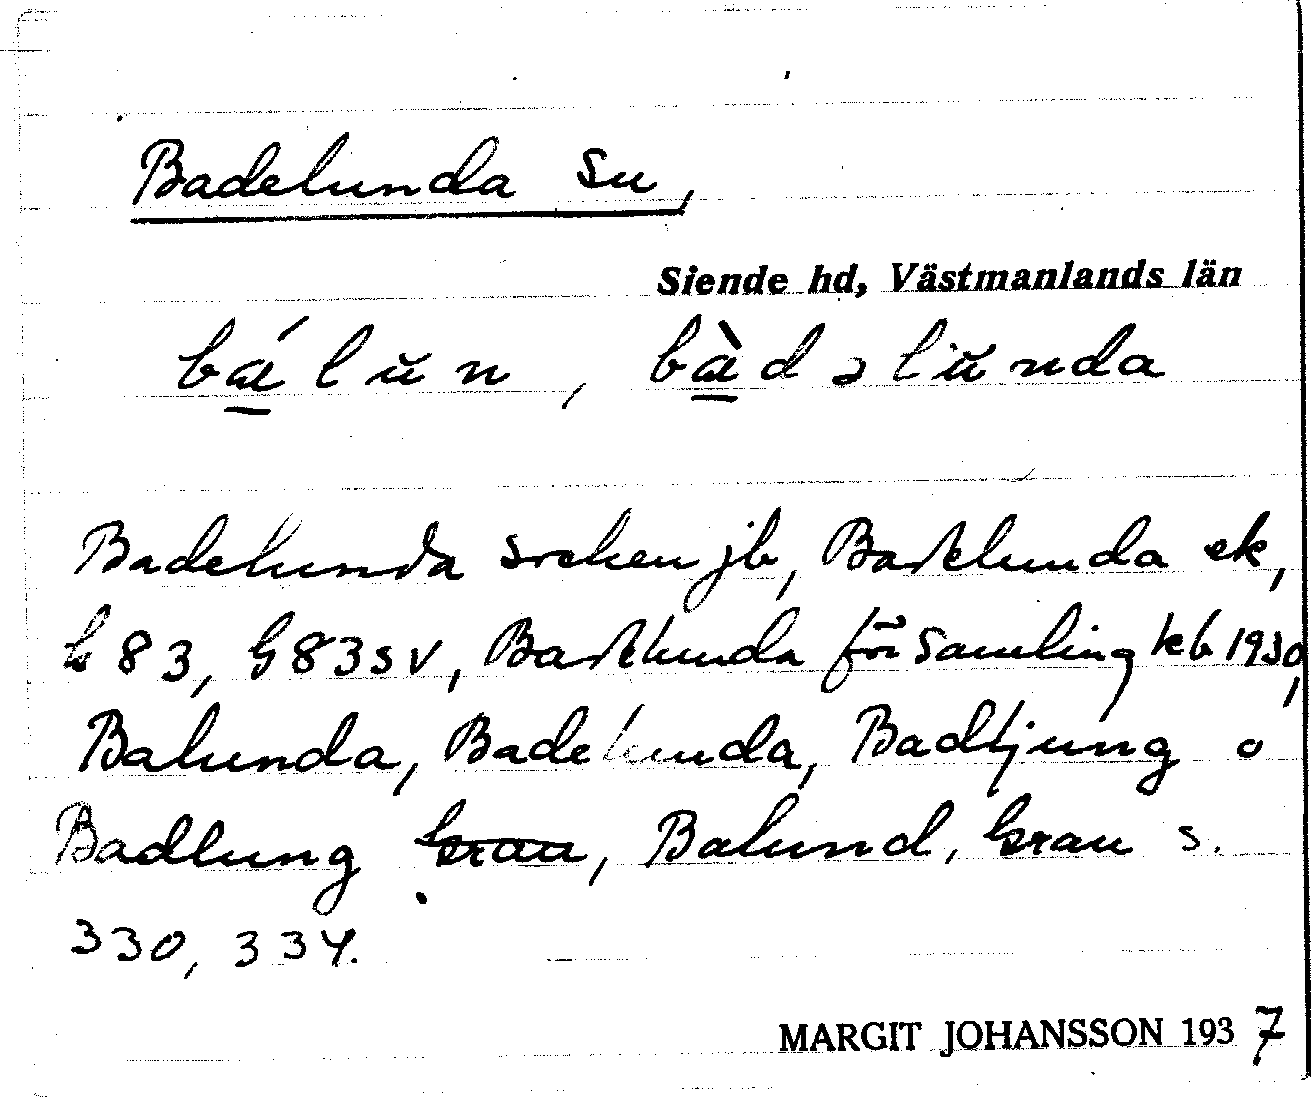 Badelunda Sn,
Siende hd, Västmanlands län
bálŭn, bàdəlŭnda
Badelunda socken jb, Badelunda ek,
h 83, G83sv, Badelunda församling kb 1930,
Balunda, Badelunda, Badljung o
Badlung Grau, Balund, Grau s.
330, 334.
MARGIT JOHANSSON 1937